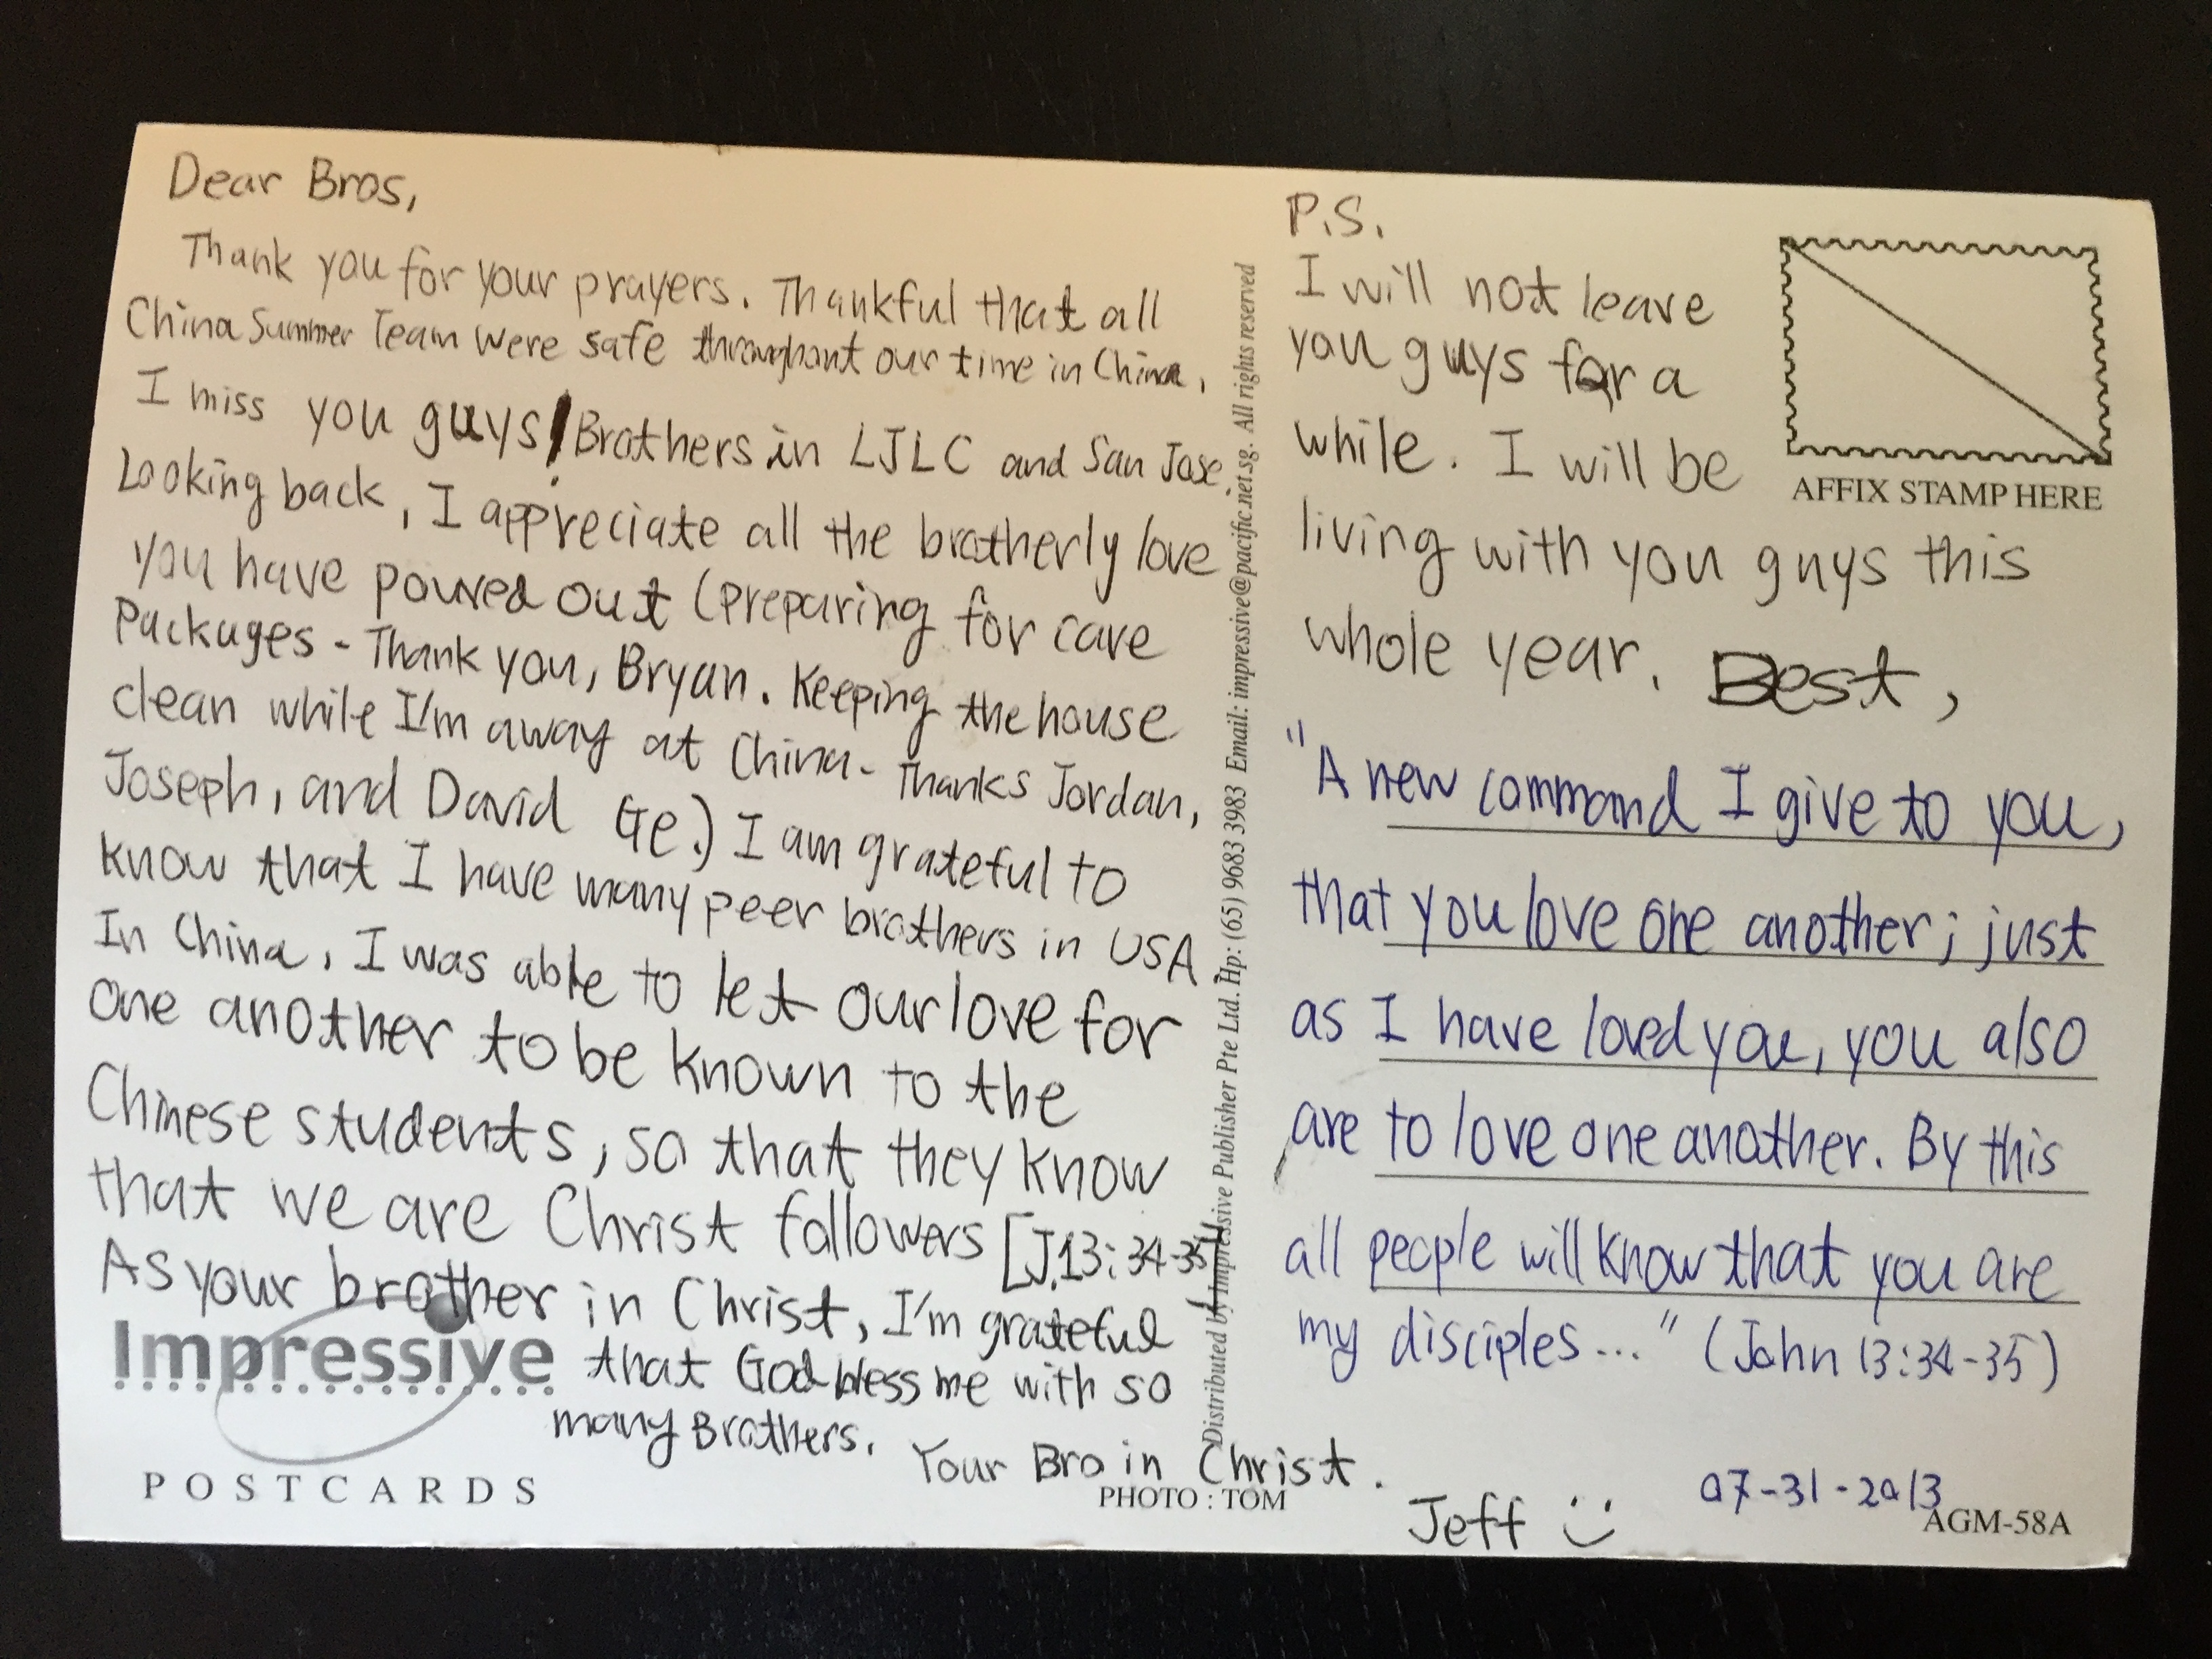 Dear Bros,
Thank you for your prayers. Thankful that all
China Summer Team were safe throughout our time in China.
I miss you guys! Brothers in LJLC and San Jose.
Looking back, I appreciate all the brotherly love
you have poured out (preparing for care
Packages - Thank you, Bryan. Keeping the house
clean while I'm away at China - Thanks Jordan,
Joseph, and David Ge.) I am grateful to
know that I have many peer brothers in USA.
In China, I was able to let our love for
one another to be known to the
Chinese students, so that they know
that we are Christ followers [J.13:34-35]
As your brother in Christ, I'm grateful
that God bless me with so
many Brothers.
Your Bro in Christ.
Jeff :)
Impressive
POSTCARDS
PHOTO : TOM
Distributed by Impressive Publisher Pte Ltd. Hp: (65) 9683 3983 Email: impressive@pacific.net.sg. All rights reserved
P.S.
I will not leave
you guys for a
while. I will be
living with you guys this
whole year. Best,
AFFIX STAMP HERE
"A new command I give to you,
that you love one another; just
as I have loved you, you also
are to love one another. By this
all people will know that you are
my disciples..." (John 13:34-35)
07-31-2013
AGM-58A